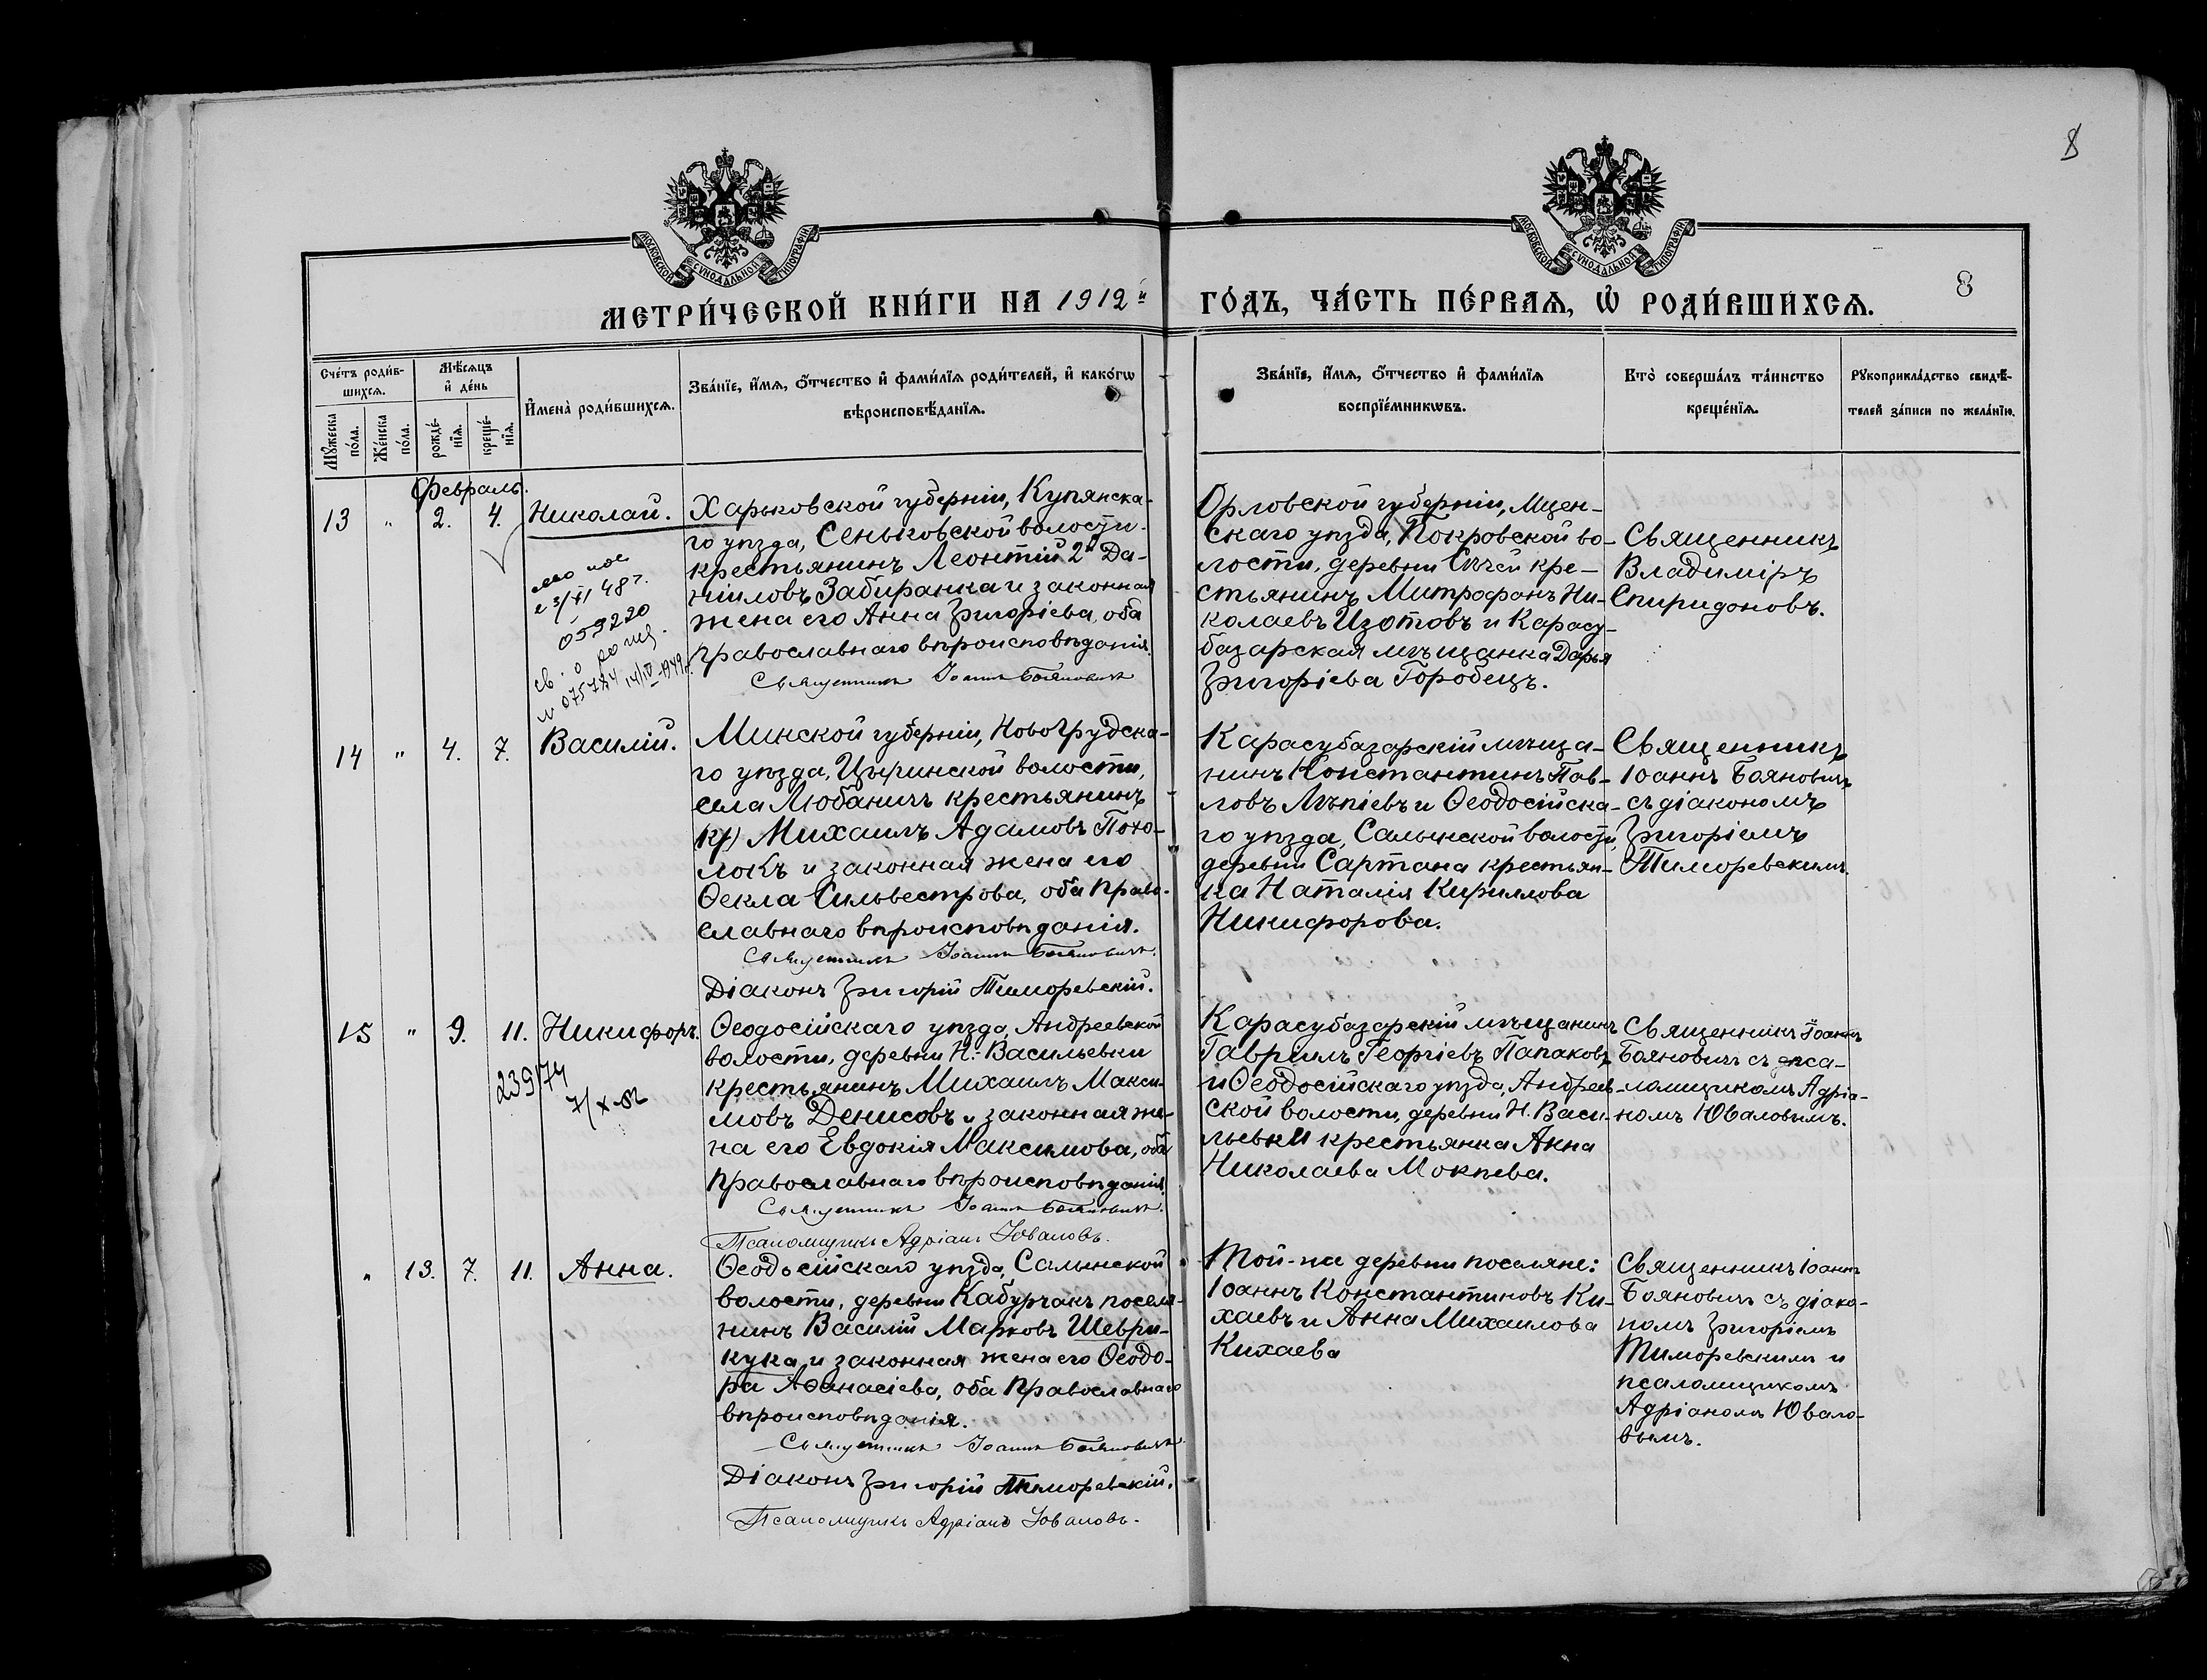 8
МОСКОВСКОЙ СѴНОДАЛЬНОЙ ТИПОГРАФІИ
МОСКОВСКОЙ СѴНОДАЛЬНОЙ ТИПОГРАФІИ
8
МЕТРИ́ЧЕСКОЙ КНИ́ГИ НА 1912й ГО́ДЪ, ЧА́СТЬ ПЕ́РВАѦ, Ѡ РОДИ́ВШИХСѦ.
Сче́тъ роди́в-
шихсѧ.
Мꙋ́жеска
по́ла.
Же́нска
по́ла.
Мѣ́сѧцъ
и҆ де́нь
рожде́-
нїѧ.
креще́-
нїѧ.
И҆мена̀ роди́вшихсѧ.
Зва́нїе, и҆́мѧ, ѻ҆́тчество и҆ фами́лїѧ роди́телей, и҆ како́гѡ
вѣроисповѣ́данїѧ.
Зва́нїе, и҆́мѧ, ѻ҆́тчество и҆ фами́лїѧ
воспрїе́мникѡвъ.
Кто̀ соверша́лъ та́инство
креще́нїѧ.
Рꙋкоприкла́дство свидѣ́-
телей за́писи по жела́нїю.
Февраль.
13 " 2. 4. Николай.
059220
св. о рожд.
14/IV-1949г.
Харьковской губерніи, Купянска-
го уѣзда, Сеньковской волости
крестьянинъ Леонтій 2й Да-
ніиловъ Забиранка и законная
жена его Анна Григоріева, оба
православнаго вѣроисповѣданія.
Священникъ Іоаннъ Бояновичъ
Орловской губерніи, Мцен-
скаго уѣзда, Покровской во-
лости, деревни кре-
стьянинъ Митрофанъ Ни-
колаевъ Изотовъ и Карасу-
базарская мѣщанка Дарья
Григоріева Горобецъ.
Священникъ
Владиміръ
Спиридоновъ.
14 " 4. 7. Василій.
Минской губерніи, Новогрудска-
го уѣзда, Цыринской волости,
села Любаничъ крестьянинъ
Михаилъ Адамовъ Пото-
локъ и законная жена его
Ѳекла Сильвестрова, оба право-
славнаго вѣроисповѣданія.
Священникъ Іоаннъ Бояновичъ.
Діаконъ Григорій Тиморевскій.
Карасубазарскій мѣща-
нинъ Константинъ Пав-
ловъ и Ѳеодосійска-
го уѣзда, Салынской волости,
деревни Сартана крестьян-
ка Наталія Кириллова
Никифорова.
Священникъ
Іоаннъ Бояновичъ
съ діакономъ
Григоріемъ
Тиморевскимъ.
15 " 9. 11. Никифоръ.
239174
7/X-52
Ѳеодосійскаго уѣзда, Андреевской
волости, деревни Н.-Васильевки
крестьянинъ Михаилъ Макси-
мовъ Денисовъ и законная же-
на его Евдокія Максимова, оба
православнаго вѣроисповѣданія.
Священникъ Іоаннъ Бояновичъ.
Псаломщикъ Адріанъ Юваловъ.
Карасубазарскій мѣщанинъ
Гавріилъ Георгіевъ Папаковъ
и Ѳеодосійскаго уѣзда, Андреев-
ской волости, деревни Н. Васи-
льевки крестьянка Анна
Николаева Мокѣева.
Священникъ Іоаннъ
Бояновичъ съ пса-
ломщикомъ Адріа-
номъ Юваловымъ.
" 13. 7. 11. Анна.
Ѳеодосійскаго уѣзда, Салынской
волости, деревни Кабурчакъ поселя-
нинъ Василій Марковъ Шеври-
кука и законная жена его Ѳеодо-
ра Аѳанасіева, оба православнаго
вѣроисповѣданія.
Священникъ Іоаннъ Бояновичъ
Діаконъ Григорій Тиморевскій.
Псаломщикъ Адріанъ Юваловъ.
Той-же деревни поселяне:
Іоаннъ Константиновъ Ки-
хаевъ и Анна Михаилова
Кихаева
Священникъ Іоаннъ
Бояновичъ съ діако-
номъ Григоріемъ
Тиморевскимъ и
псаломщикомъ
Адріаномъ Ювало-
вымъ.